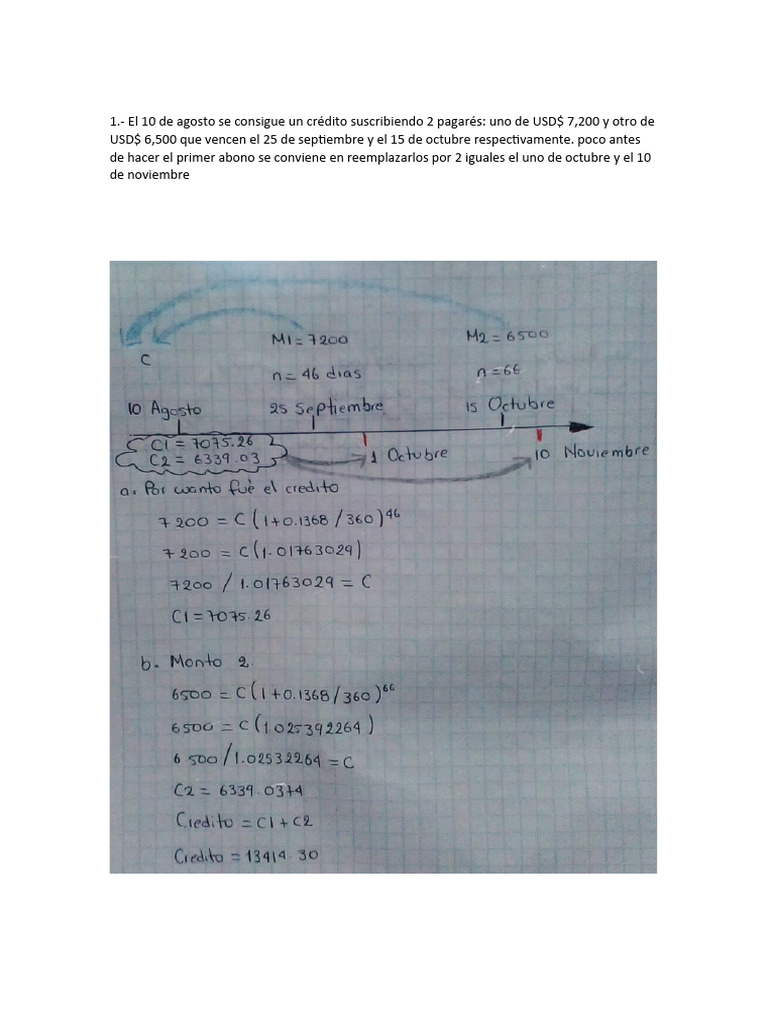 1.- El 10 de agosto se consigue un crédito suscribiendo 2 pagarés: uno de USD$ 7,200 y otro de
USD$ 6,500 que vencen el 25 de septiembre y el 15 de octubre respectivamente. poco antes
de hacer el primer abono se conviene en reemplazarlos por 2 iguales el uno de octubre y el 10
de noviembre
M1 = 7200 M2 = 6500
C
n = 46 dias n = 66
10 Agosto 25 Septiembre 15 Octubre
C1 = 7075.26
C2 = 6339.03 1 Octubre 10 Noviembre
a. Por cuanto fué el credito
7200 = C (1+0.1368/360)^46
7200 = C(1.01763029)
7200 / 1.01763029 = C
C1 = 7075.26
b. Monto 2
6500 = C(1+0.1368/360)^66
6500 = C(1.025392264)
6500/1.02532264 = C
C2 = 6339.0374
Credito = C1 + C2
Credito = 13414.30